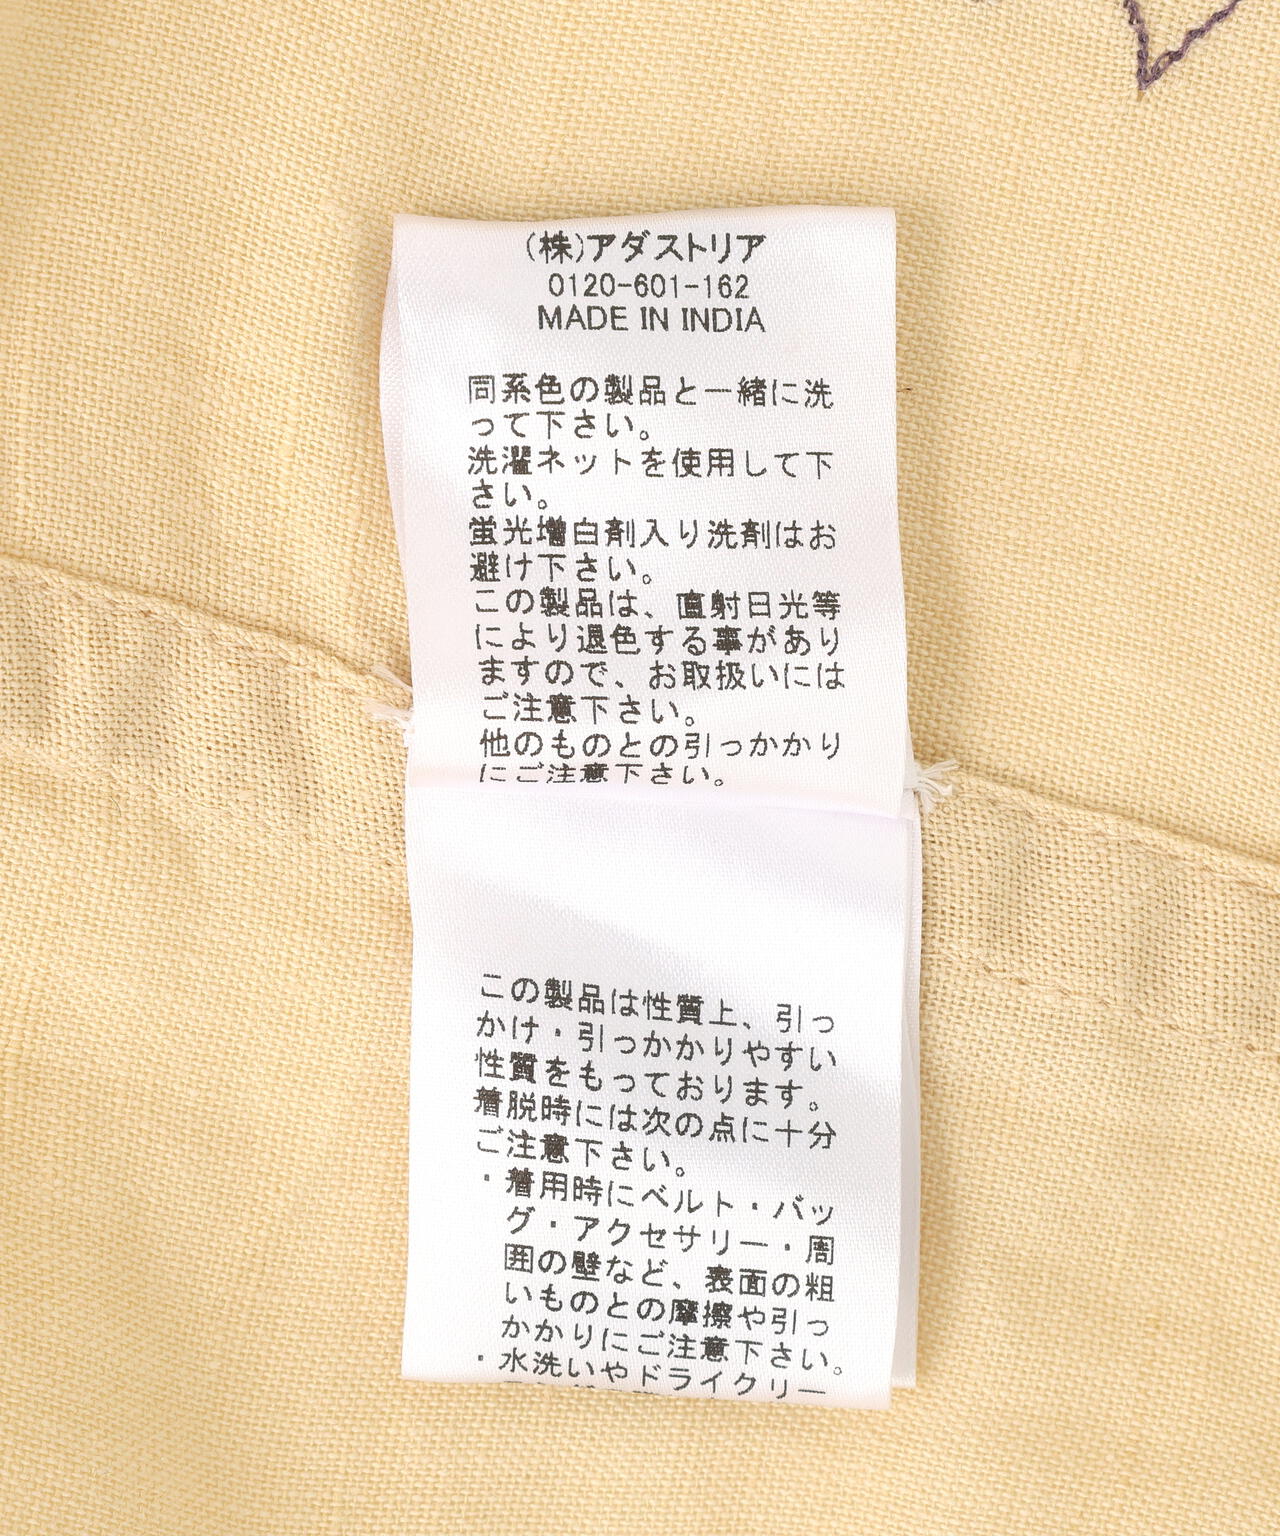 (株)アダストリア
0120-601-162
MADE IN INDIA
同系色の製品と一緒に洗
って下さい。
洗濯ネットを使用して下
さい。
蛍光増白剤入り洗剤はお
避け下さい。
この製品は、直射日光等
により退色する事があり
ますので、お取扱いには
ご注意下さい。
他のものとの引っかかり
にご注意下さい。
この製品は性質上、引っ
かけ・引っかかりやすい
性質をもっております。
着脱時には次の点に十分
ご注意下さい。
・着用時にベルト・バッ
グ・アクセサリー・周
囲の壁など、表面の粗
いものとの摩擦や引っ
かかりにご注意下さい。
・水洗いやドライクリー